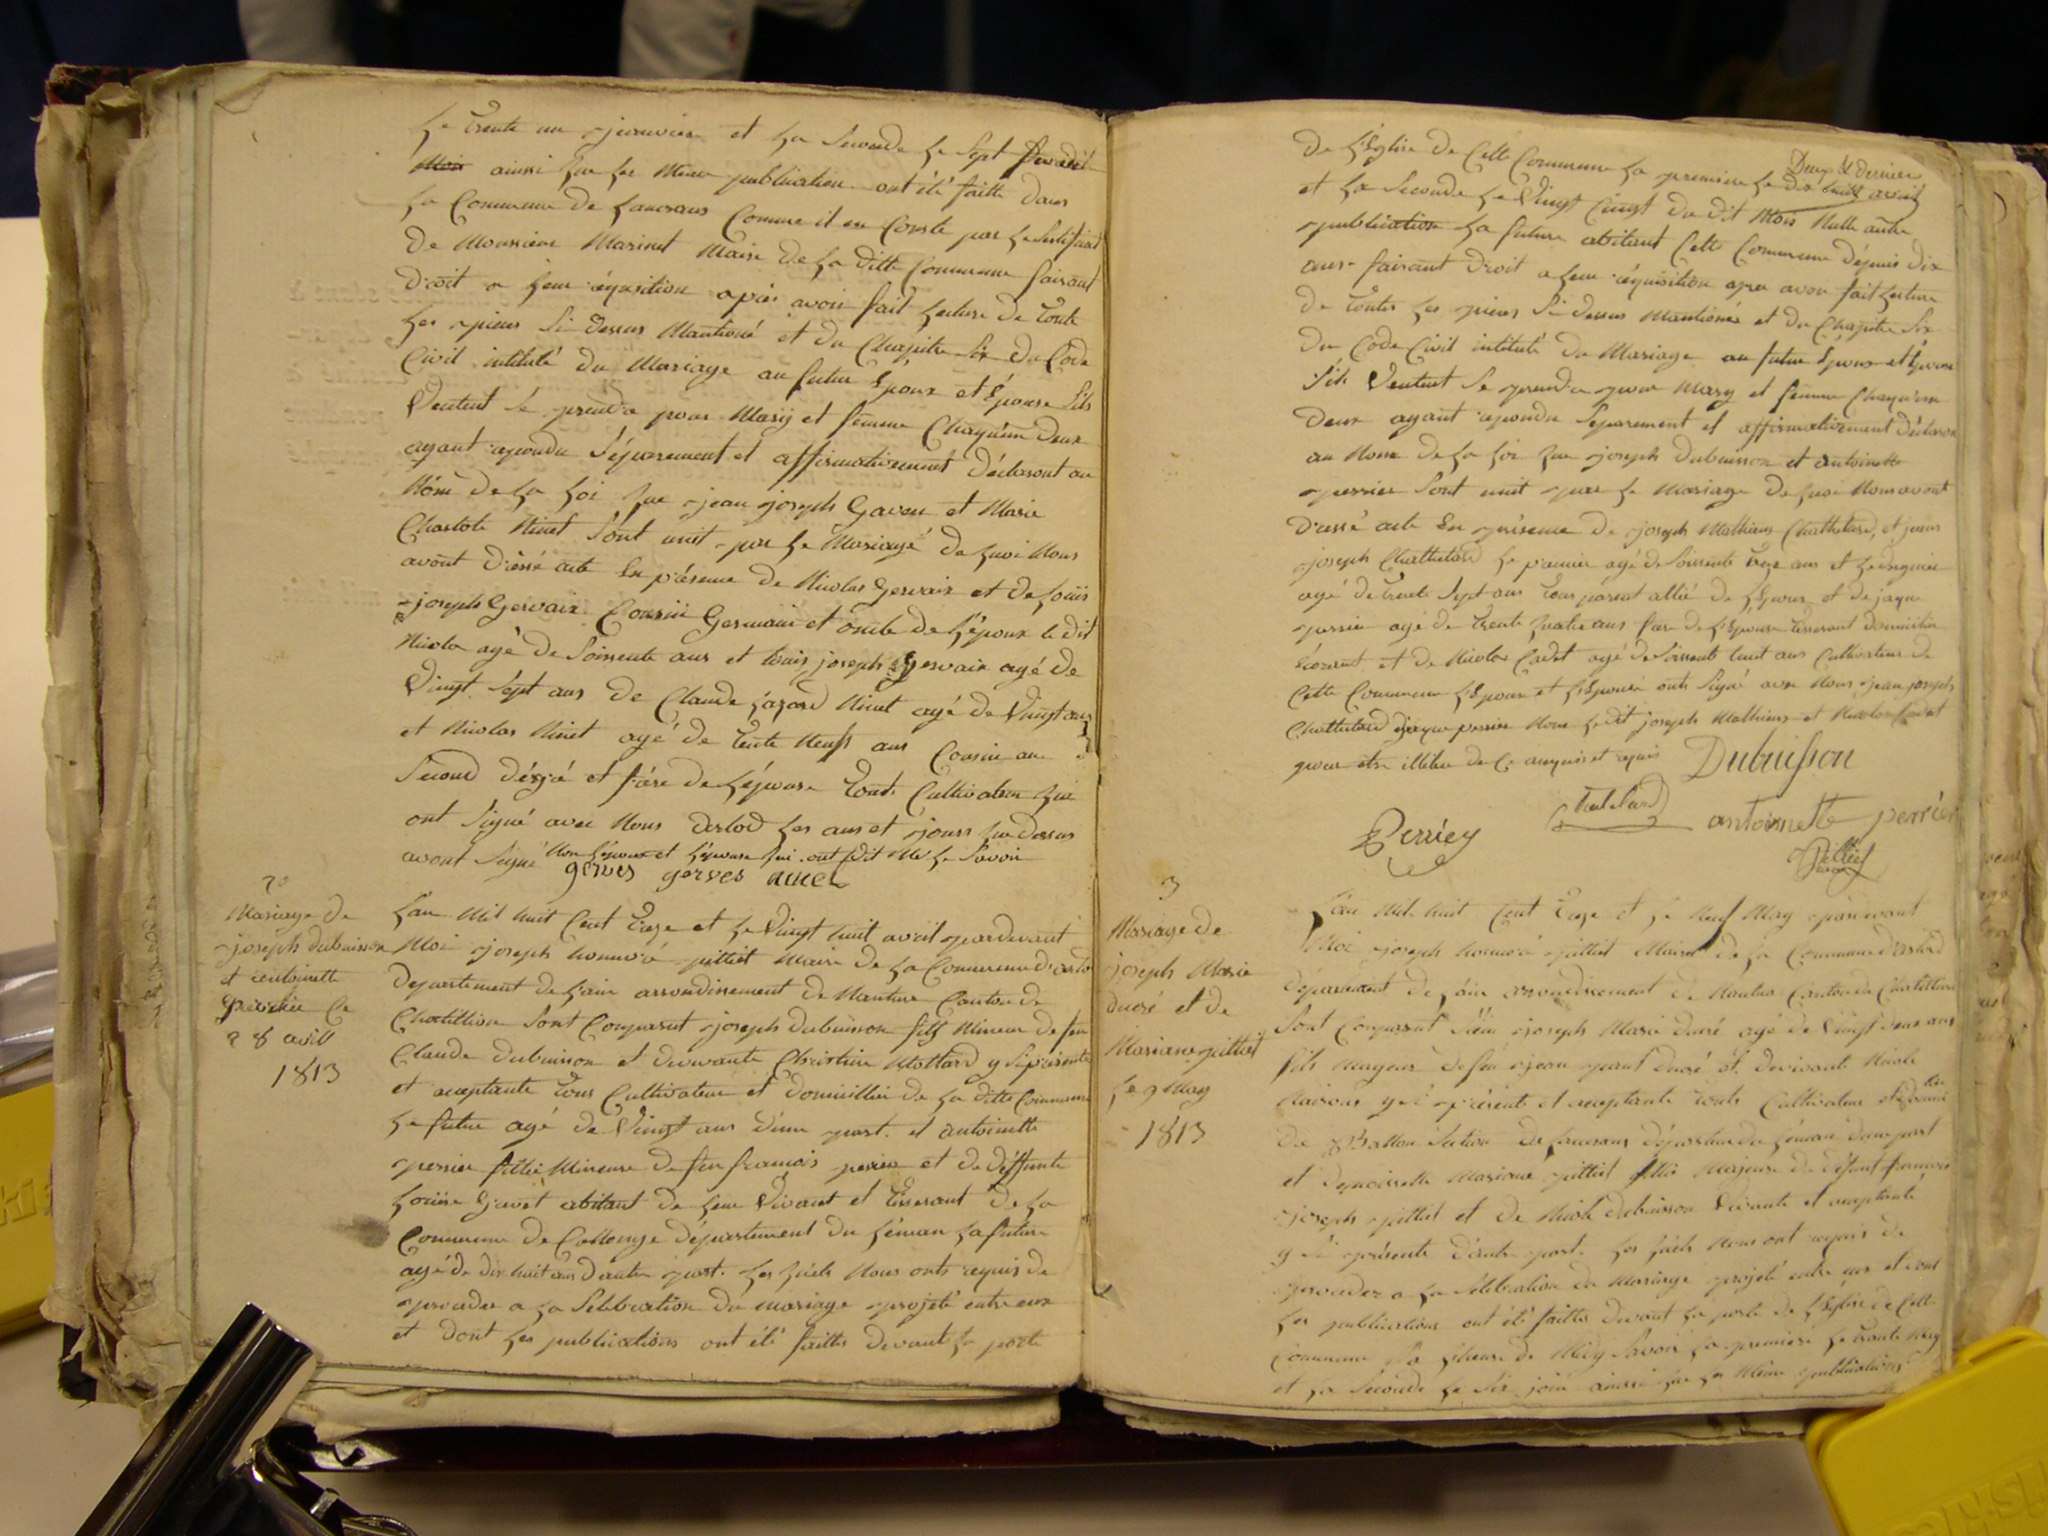 Le trente un janvier et la seconde le sept
Mois ainsi que les même publication ont été faitte dans
la Commune de Lancrans Comme il en Conste par le
de Monsieur Marinet Maire de la ditte Commune faisant
droit a leur réquisition après avoir fait lecture de toute
les pieces si dessus Mantioné et du Chapitre six du Code
Civil intitulé du Mariage au futur Époux et Épouse s'ils
Veutent se prendre pour Mary et femme Chaqu'un deux
ayant repondu séparement et affirmativement déclaront au
Nom de la loi que jean joseph Gaveu et Marie
Charlote Ninet sont unit par le Mariage de quoi Nous
avont dréssé acte En présence de Nicolas Gervaix et de Louis
joseph Gervaix Cousin Germain et oncle de l'époux le dit
Nicolas agé de soissente ans et louis joseph gervaix agé de
Vingt sept ans de Claude Lazard Ninet agé de Vingt ans
et Nicolas Ninet agé de trente neuf ans Cousin au
second dégré et frére de l'épouse touts Cultivateur qui
ont signé avec Nous les ans et jours que dessus
avont signé Non l'époux et l'épouse qui ont dit Ne le savoir
gerves gerves
2
Mariage de
joseph dubuisson
et antoinette
perrier Ce
28 avill
1813
Lan Mil huit Cent treze et le Vingt huit avril pardevant
Moi joseph honnoré pittiet Maire de la Commune
departement de l'ain arrondissement de Nantua Canton de
Chatillion sont Comparut joseph dubuisson fils Mineur de feu
Claude dubuisson et devivante Christine Mottard y si présente
et aceptante tous Cultivateur et domicillier de la ditte Commune
le futur agé de Vingt ans d'une part et antoinette
perrier fillie Mineure de feu françois perrier et de déffunte
Louise Gavet abitant de leur Vivant et tisserant de la
Commune de Collonge département du Léman la future
agé de dix huit ans d'autre part les quels Nous onts requis de
proceder a la Selebration du mariage projeté entre eux
et dont les publications ont été faittes devant la porte
de l'Eglise de Cette Commune la premiere le dix huit avril
Deux & dernier
et la seconde le Vingt Cinqt du dit Mois Nulle autre
publication la future abitant Cette Commune dépuis dix
ans faisant droit a leur réquisition apres avoir fait lecture
de toutes les pieces si dessus Mantionés et du Chapitre six
du Code Civil intitulé du Mariage au futur Époux et Épouse
s'ils Veutent se prendre pour Mary et femme Chaqu'un
deux ayant repondu separement et affirmativement déclaron
au Nom de la loi que joseph dubuisson et antoinette
perrier sont unit par le Mariage de quoi Nous avont
dressé acte En présence de joseph Mathieux Chattelard, et jean
joseph Chattelard le premier agé de soissente treze ans et le
agé de trente sept ans tous parent allié de l'Epoux et de jaque
perrier agé de trente quatre ans frere de l'Epouse tisserant domicilier
et de Nicolas Cadet agé de soissante huit ans Cultivateur de
Cette Commune l'Epoux et l'Epouse onts signé avec Nous jean joseph
Chattelard jaque perrier Non le dit joseph Mathieux et Nicolas Cadet
pour etre illitere de Ce anquis et requis Dubuisson
Perrier Chatelard antoinette perrier
Pittiet
3
Mariage de
joseph Marie
ducré et de
Mariane pittiet
le 9 May
1813
L'an Mil huit Cent treze et le Neuf May pardevant
Moi joseph honnoré pittiet Maire de la Commune
département de l'ain arrondissement de Nantua Canton de Chatillion
sont Comparut joseph Marie ducré agé de Vingt deux ans
fils Mageur de feu jean ducré et devivante Nicole
y si présente et aceptante touts Cultivateur
de Ballon Section de Lancrans département du Léman d'une part
et demoiselle Mariane pittiet fillie Majeure de défunt francois
joseph pittiet et de Nicole dubuisson Vivante et aceptante
y si présente d'autre part les quels Nous ont requis de
proceder a la Selebration du Mariage projeté entre eux et dont
les publications ont été faittes devant la porte de l'Eglise de Cette
Commune a l'heure de Midy savoir la premiere le trante May
et la seconde le six juin ainsi que les Même publications